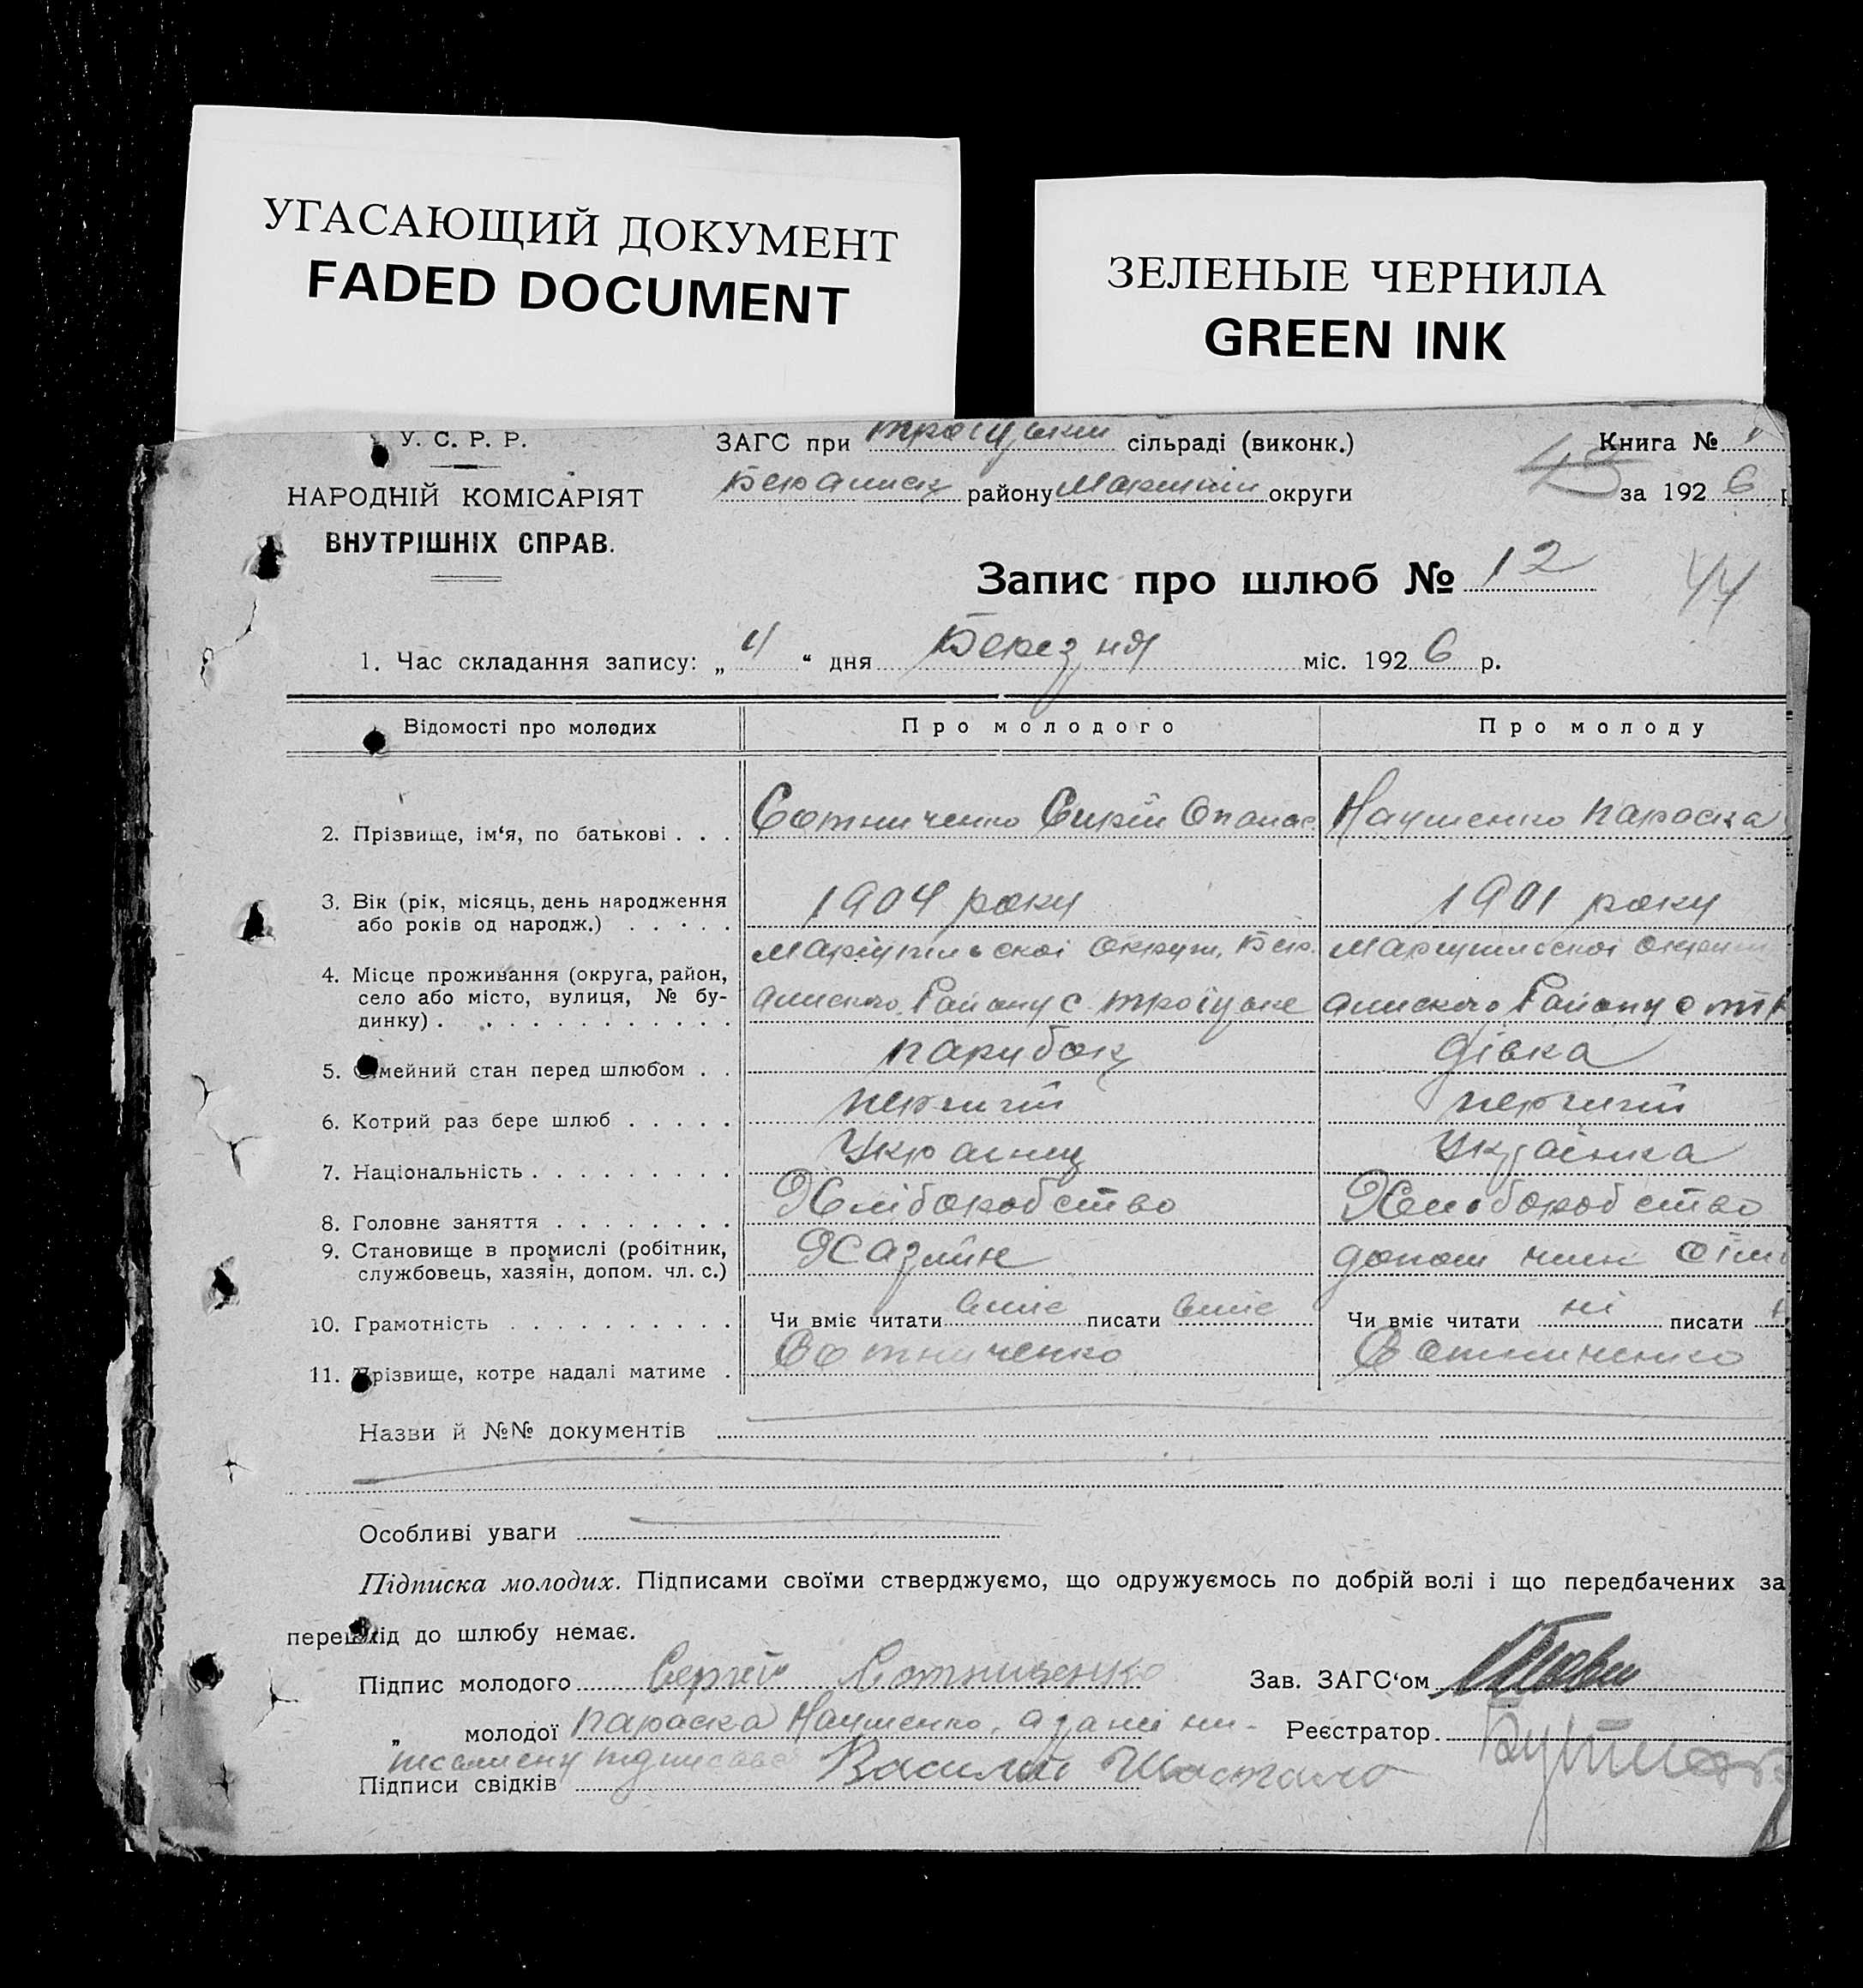 УГАСАЮЩИЙ ДОКУМЕНТ
FADED DOCUMENT
ЗЕЛЕНЫЕ ЧЕРНИЛА
GREEN INK
У. С. Р. Р.
НАРОДНІЙ КОМІСАРІЯТ
ВНУТРІШНІХ СПРАВ.
ЗАГС при сільраді (виконк.)
району округи
Книга №
за 192 6 р
43
44
Запис про шлюб № 12
1. Час складання запису: „ “ дня Березня міс. 192 6 р.
Відомості про молодих Про молодого Про молоду
2. Прізвище, ім‘я, по батькові . . . Сотниченко Опанас. Наученко Параска
3. Вік (рік, місяць, день народження
або років од народж.) . . . . . 1904 року 1901 року
Маріупільскої Округи, Бер. Маріупильскої Округи
4. Місце проживання (округа, район,
село або місто, вулиця, № бу-
динку) . . . . . . . . . . . . Району с Троїцьке Району с
5. мейний стан перед шлюбом . . парубок дівка
6. Котрий раз бере шлюб . . . . . перший перший
7. Національність . . . . . . . . . Українец Українка
8. Головне заняття . . . . . . . . Хліборобство Хліборобство
9. Становище в промислі (робітник,
службовець, хазяїн, допом. чл. с.) Хазяїн допом член сім
10. Грамотність . . . . . . . . . . Чи вміє читати вміє писати вміє Чи вміє читати ні писати
11. Прізвище, котре надалі матиме . Сотниченко Сотниченко
Назви й №№ документів
Особливі уваги
Підписка молодих. Підписами своїми стверджуємо, що одружуємось по добрій волі і що передбачених за
перешкід до шлюбу немає.
Підпис молодого Сергей Сотниченко Зав. ЗАГС‘ом
„ молодої Параска Наученко, а за неї не- Реєстратор
писмену підписав
Підписи свідків Василий